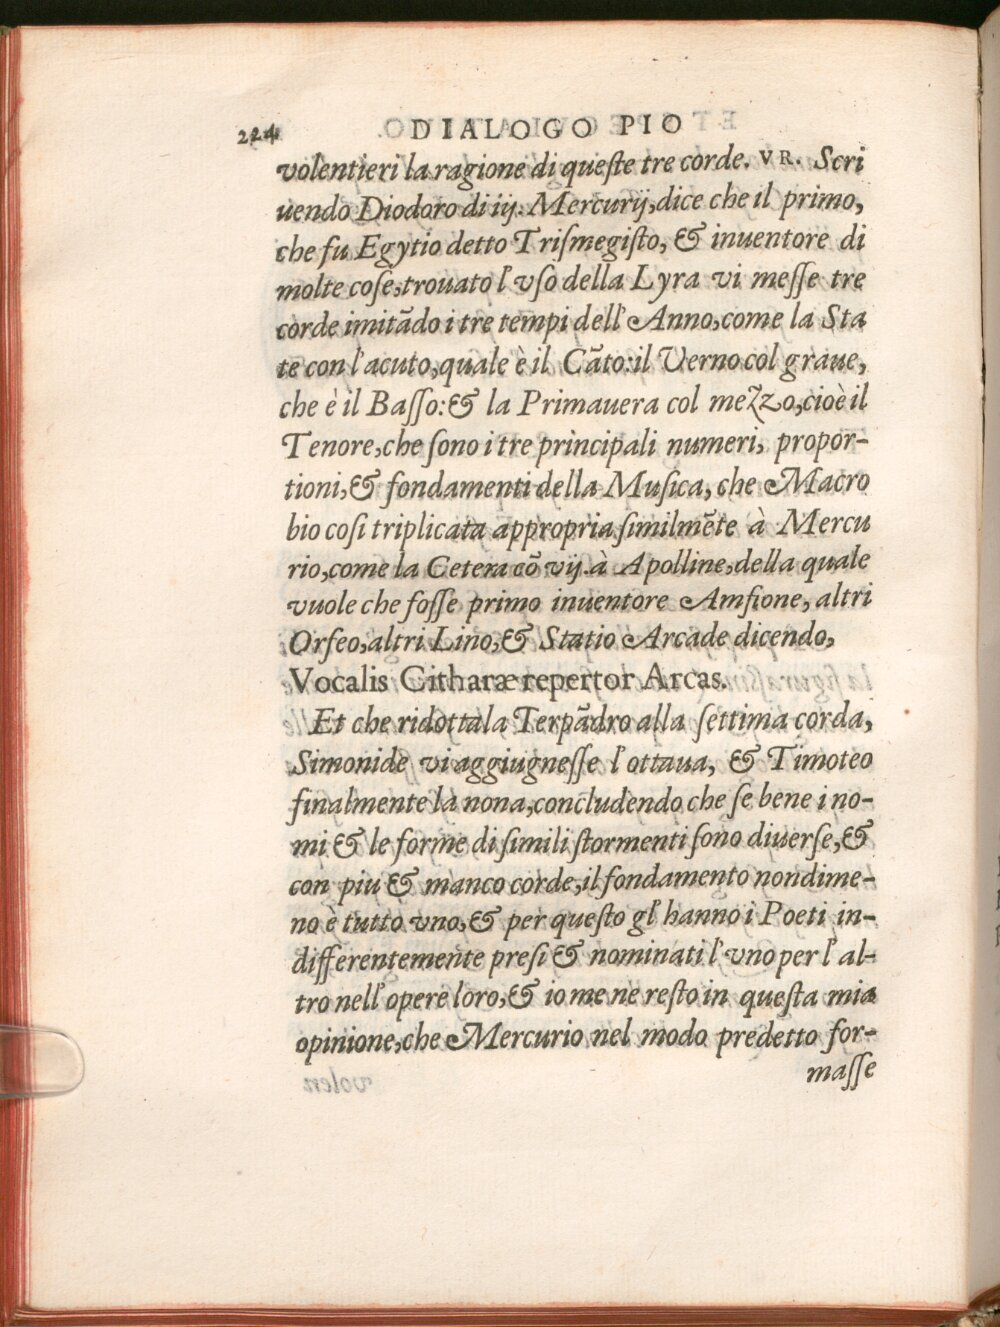 224 DIALOGO PIO
volentieri la ragione di queſte tre corde. VR. Scri
uendo Diodoro di iij. Mercurij, dice che il primo,
che fu Egytio detto Triſmegiſto, & inuentore di
molte coſe, trouato l'vſo della Lyra vi meſſe tre
corde imitãdo i tre tempi dell'Anno, come la Sta
te con l'acuto, quale è il Cãto: il Verno col graue,
che è il Baſſo: & la Primauera col mezzo, cioè il
Tenore, che ſono i tre principali numeri, propor-
tioni, & fondamenti della Muſica, che Macro
bio coſi triplicata appropria ſimilmẽte à Mercu
rio, come la Cetera cõ vij. à Apolline, della quale
vuole che foſſe primo inuentore Amfione, altri
Orfeo, altri Lino, & Statio Arcade dicendo,
Vocalis Citharæ repertor Arcas.
Et che ridottala Terpãdro alla ſettima corda,
Simonide vi aggiugneſſe l'ottaua, & Timoteo
finalmente la nona, concludendo che ſe bene i no-
mi & le forme di ſimili ſtormenti ſono diuerſe, &
con piu & manco corde, il fondamento nondime-
no è tutto vno, & per queſto gl'hanno i Poeti in-
differentemente preſi & nominati l'vno per l'al-
tro nell'opere loro, & io me ne reſto in queſta mia
opinione, che Mercurio nel modo predetto for-
maſſe